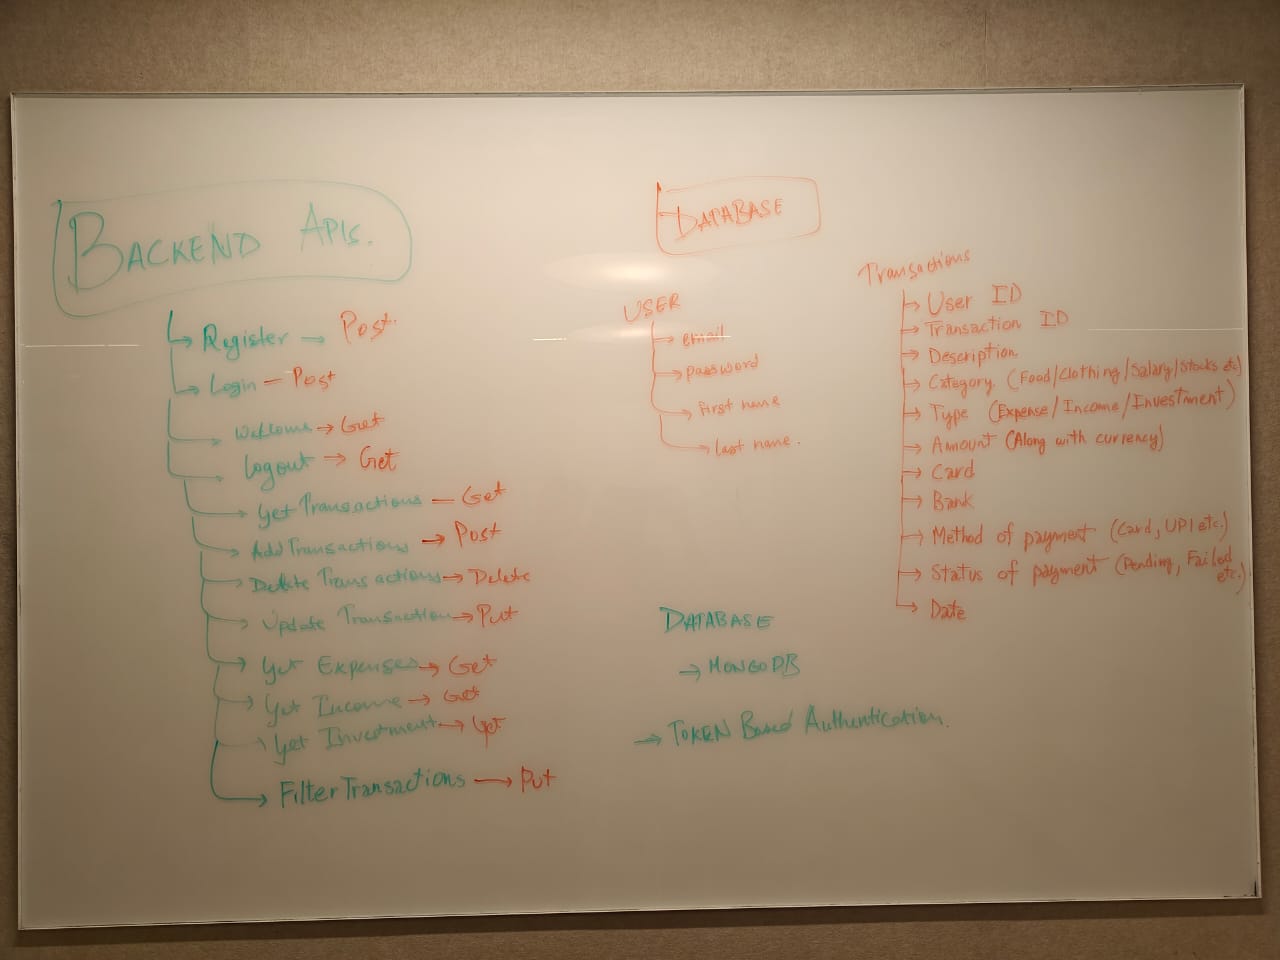 BACKEND APIs.
Register → Post.
Login – Post
Welcome → Get
logout → Get
Get Transactions – Get
Add Transactions → Post
Delete Transactions → Delete
Update Transaction → Put
Get Expenses → Get
Get Income → Get
Get Investment → Get
Filter Transactions → Put
DATABASE
USER
email
password
first name
last name.
Transactions
User ID
Transaction ID
Description
Category (Food/Clothing/Salary/Stocks etc)
Type (Expense/Income/Investment)
Amount (Along with currency)
Card
Bank
Method of payment (Card, UPI etc.)
Status of payment (Pending, Failed
etc.)
Date
DATABASE
→ MONGODB
→ TOKEN Based Authentication.